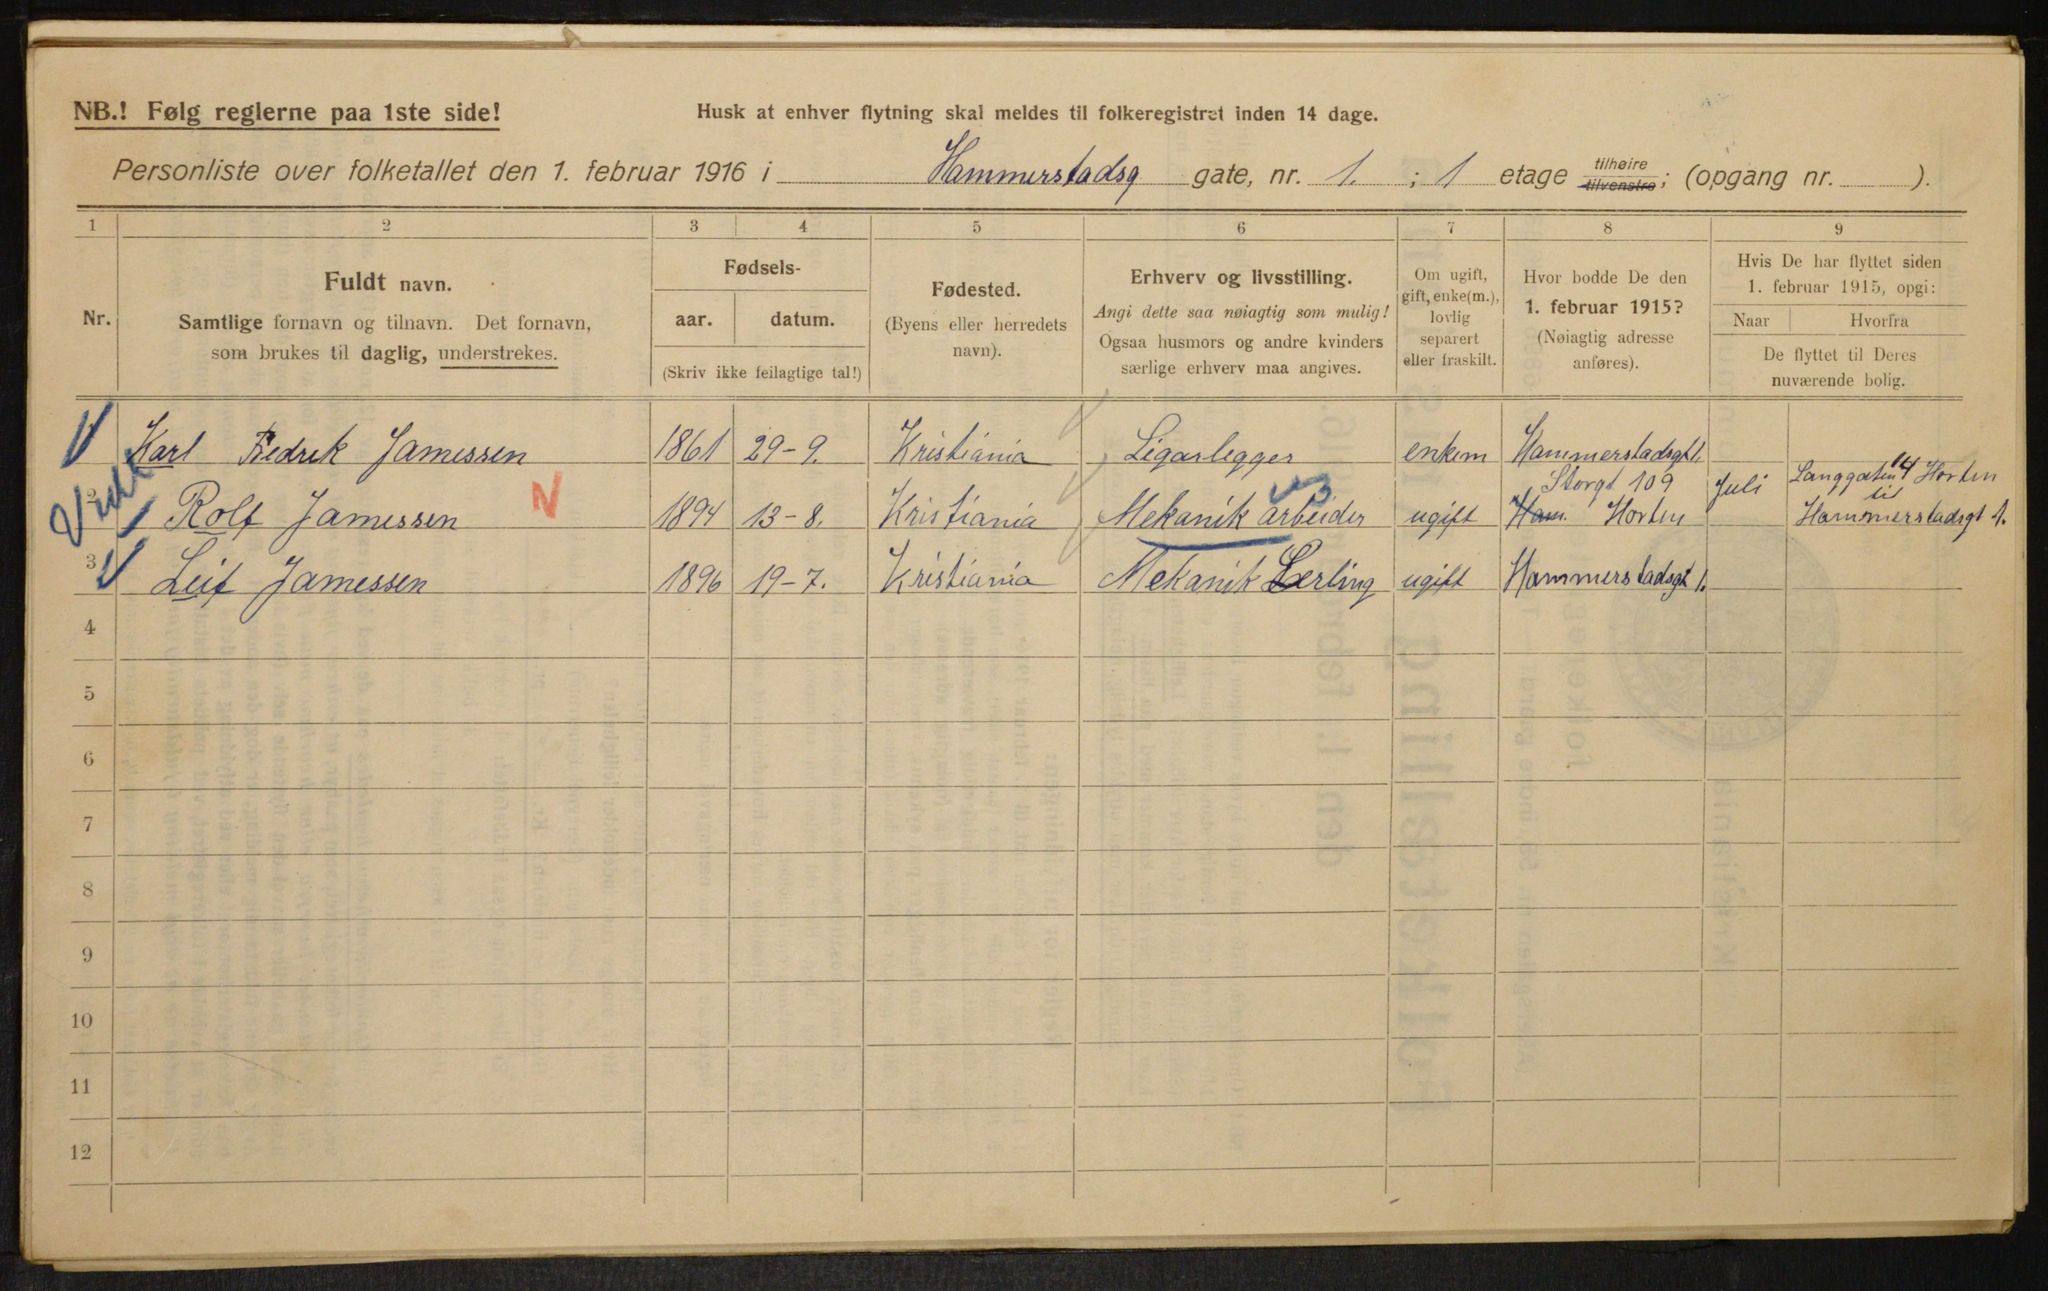 NB.! Følg reglerne paa 1ste side!
Husk at enhver flytning skal meldes til folkeregistret inden 14 dage.
Personliste over folketallet den 1. februar 1916 i Hammerstadsg gate, nr. 1. ; 1 etage tilhøire tilvenstre; (opgang nr. ).
1 2 3 4 5 6 7 8 9
Nr.
Fuldt navn.
Samtlige fornavn og tilnavn. Det fornavn,
som brukes til daglig, understrekes.
Fødsels-
aar. datum.
(Skriv ikke feilagtige tal!)
Fødested.
(Byens eller herredets
navn).
Erhverv og livsstilling.
Angi dette saa nøiagtig som mulig!
Ogsaa husmors og andre kvinders
særlige erhverv maa angives.
Om ugift,
gift, enke(m.),
lovlig
separert
eller fraskilt.
Hvor bodde De den
1. februar 1915?
(Nøiagtig adresse
anføres).
Hvis De har flyttet siden
1. februar 1915, opgi:
Naar Hvorfra
De flyttet til Deres
nuværende bolig.
1 Karl Fredrik Jamessen 1861 29-9. Kristiania Sigarlegger enkem Hammerstadsgt 1.
Storgt 109 Juli Langgaten 14 Horten
2 Rolf Jamessen 1894 13-8. Kristiania Mekanik arbeider ugift Ham. Horten til Hammerstadsgt 1.
3 Leif Jamessen 1896 19-7. Kristiania Mekanik Lærling ugift Hammerstadsgt 1.
4
5
6
7
8
9
10
11
12